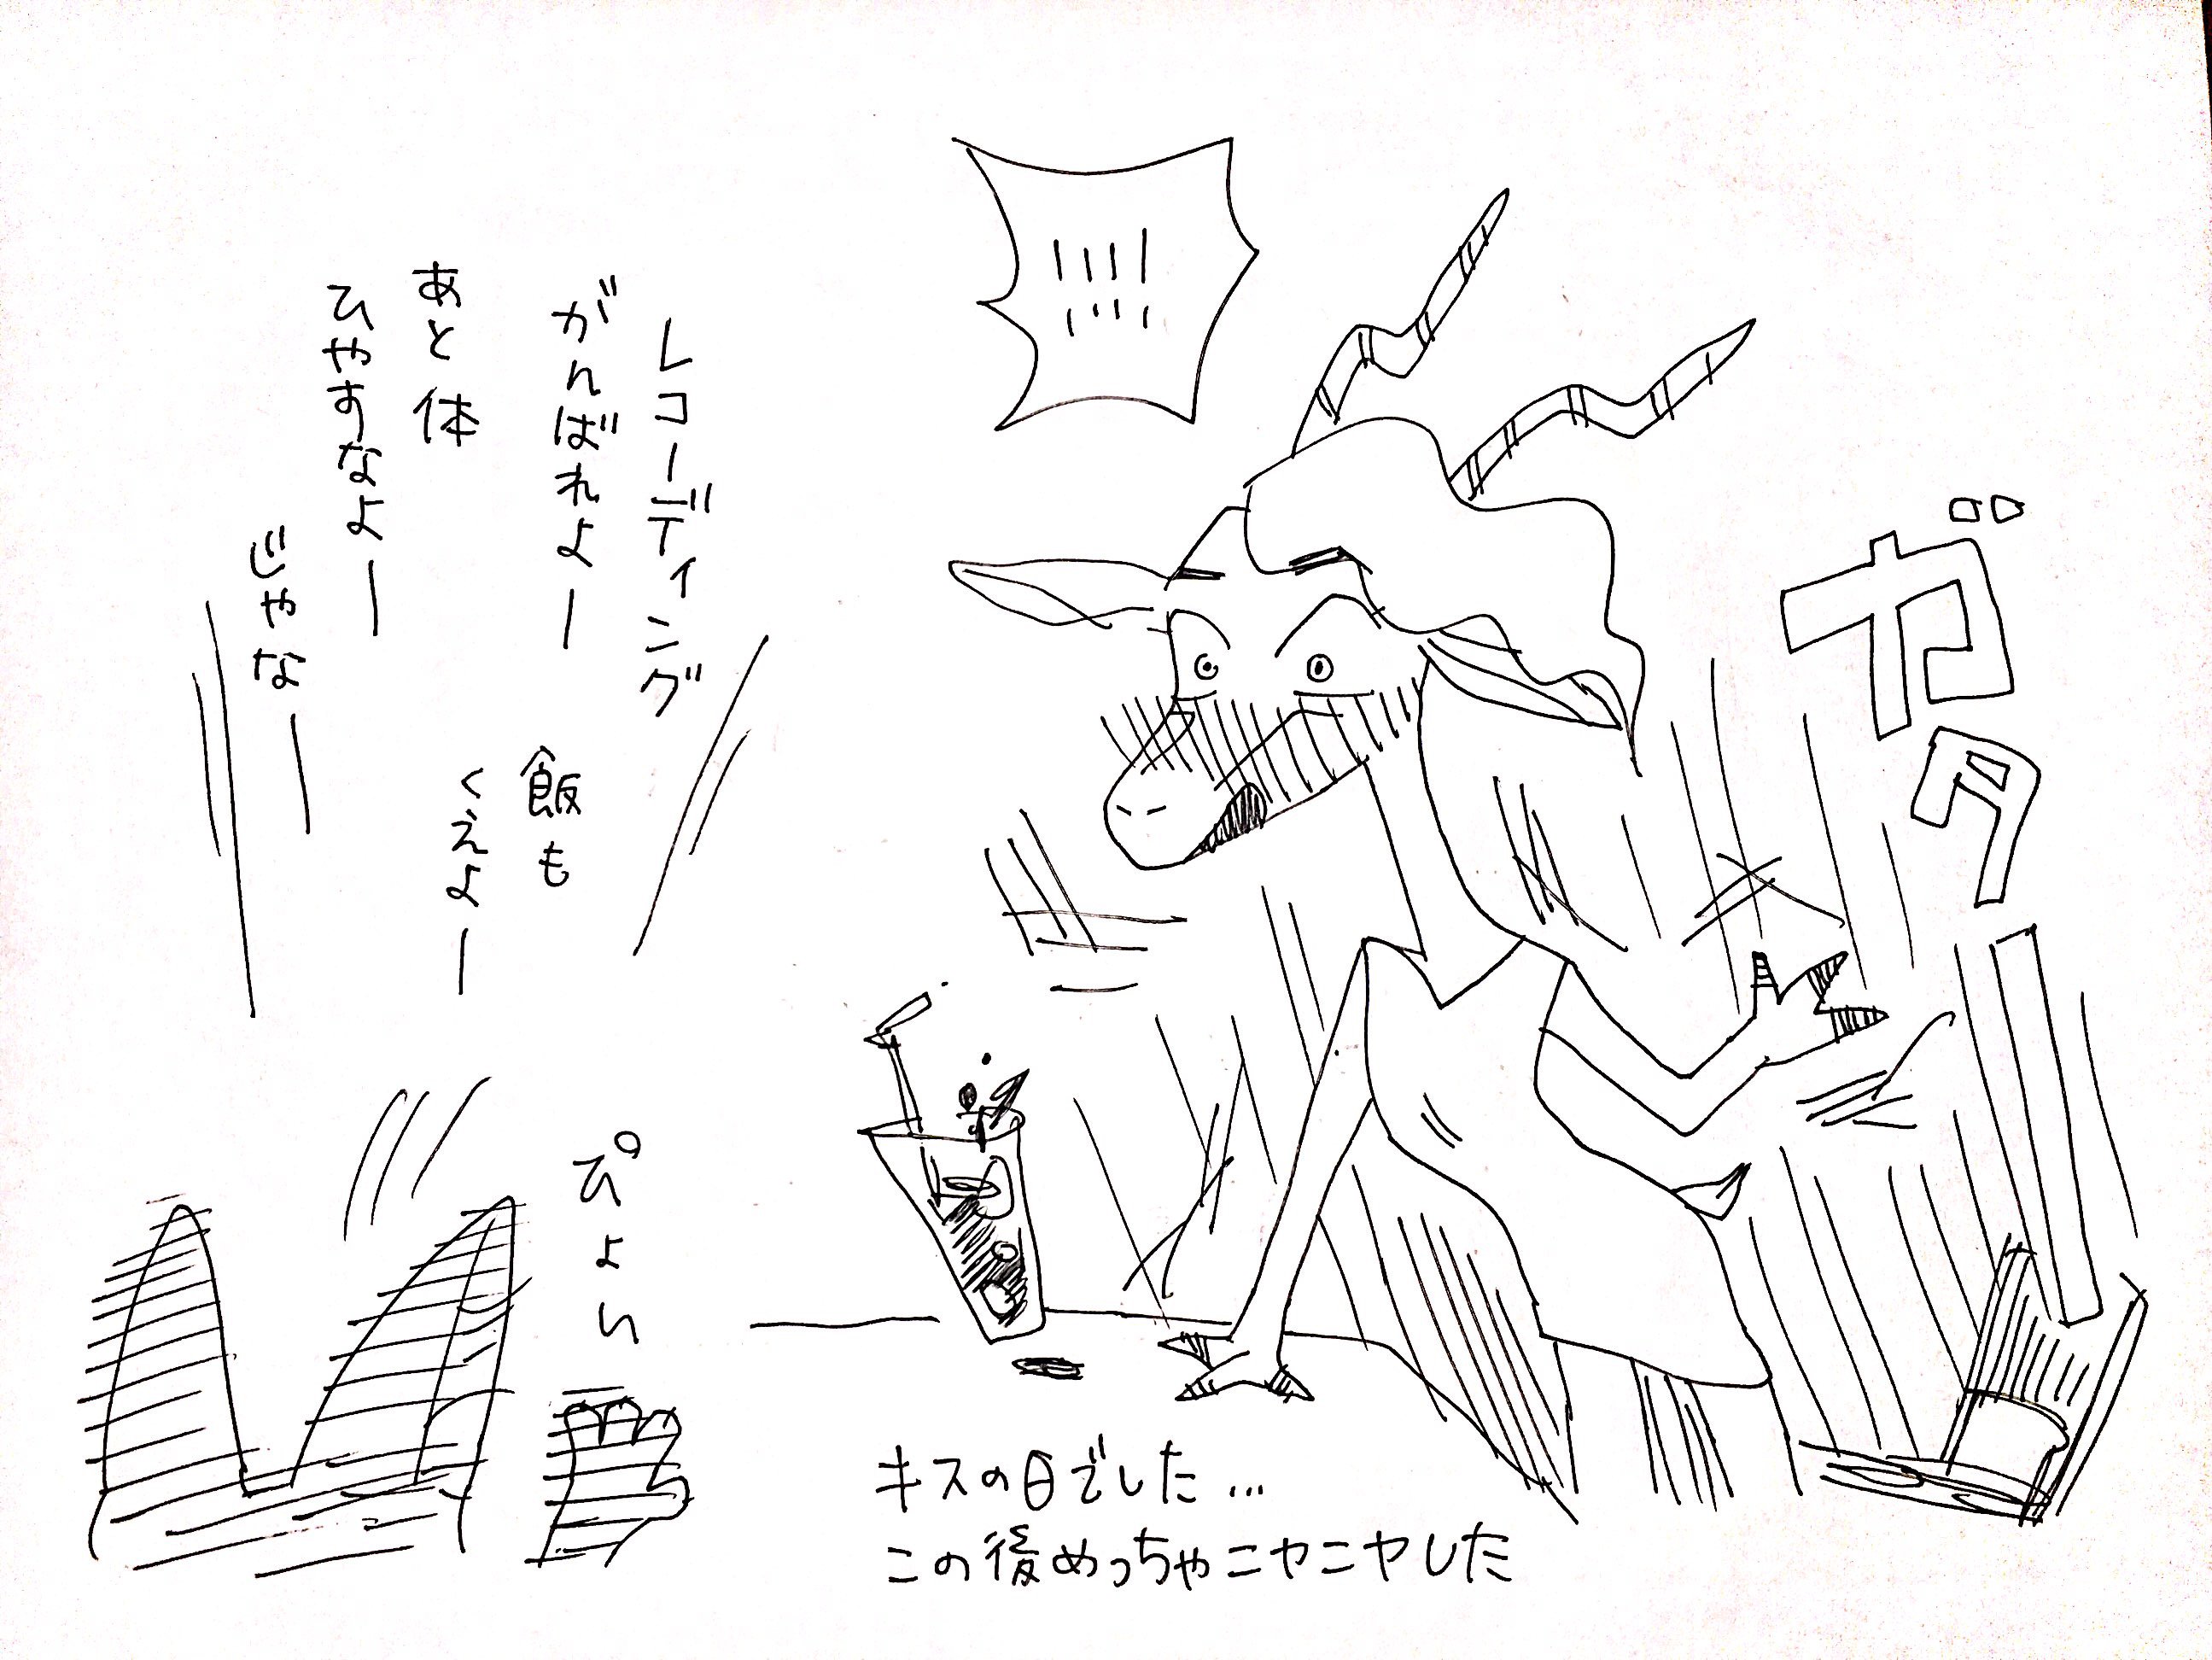 !!!!
ガタ
レコーディング
がんばれよー
飯も
くえよー
あと体
ひやすなよー
じゃなー
ぴょい
キスの日でした…
この後めっちゃニヤニヤした